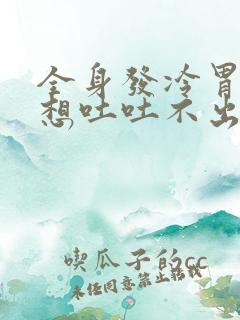 全身發冷胃
想吐吐不出
喫瓜子的cc
未經同意禁止轉載